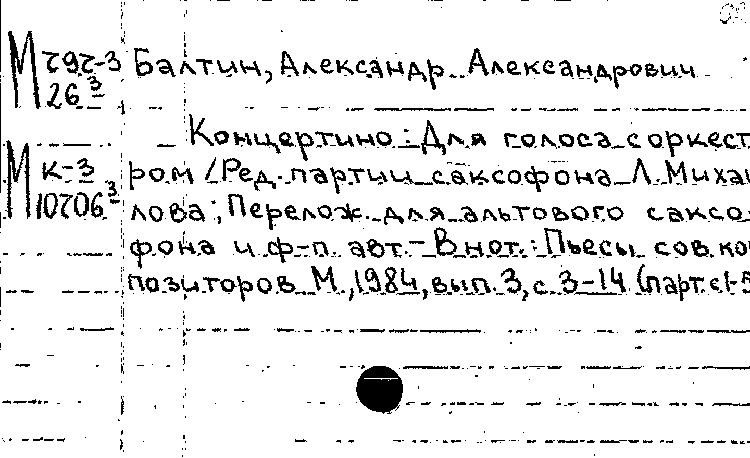 М 797-3 Балтин, Александр Александрович
26 3
Концертино: Для голоса с оркест
М к-3 ром / Ред. партии саксофона Л. Михай
10706 3 лова; Перелож. для альтового саксо
фона и ф-п. авт. - В нот.: Пьесы сов. ком
позиторов М., 1984, вып. 3, с. 3-14 (парт. с. 1-5